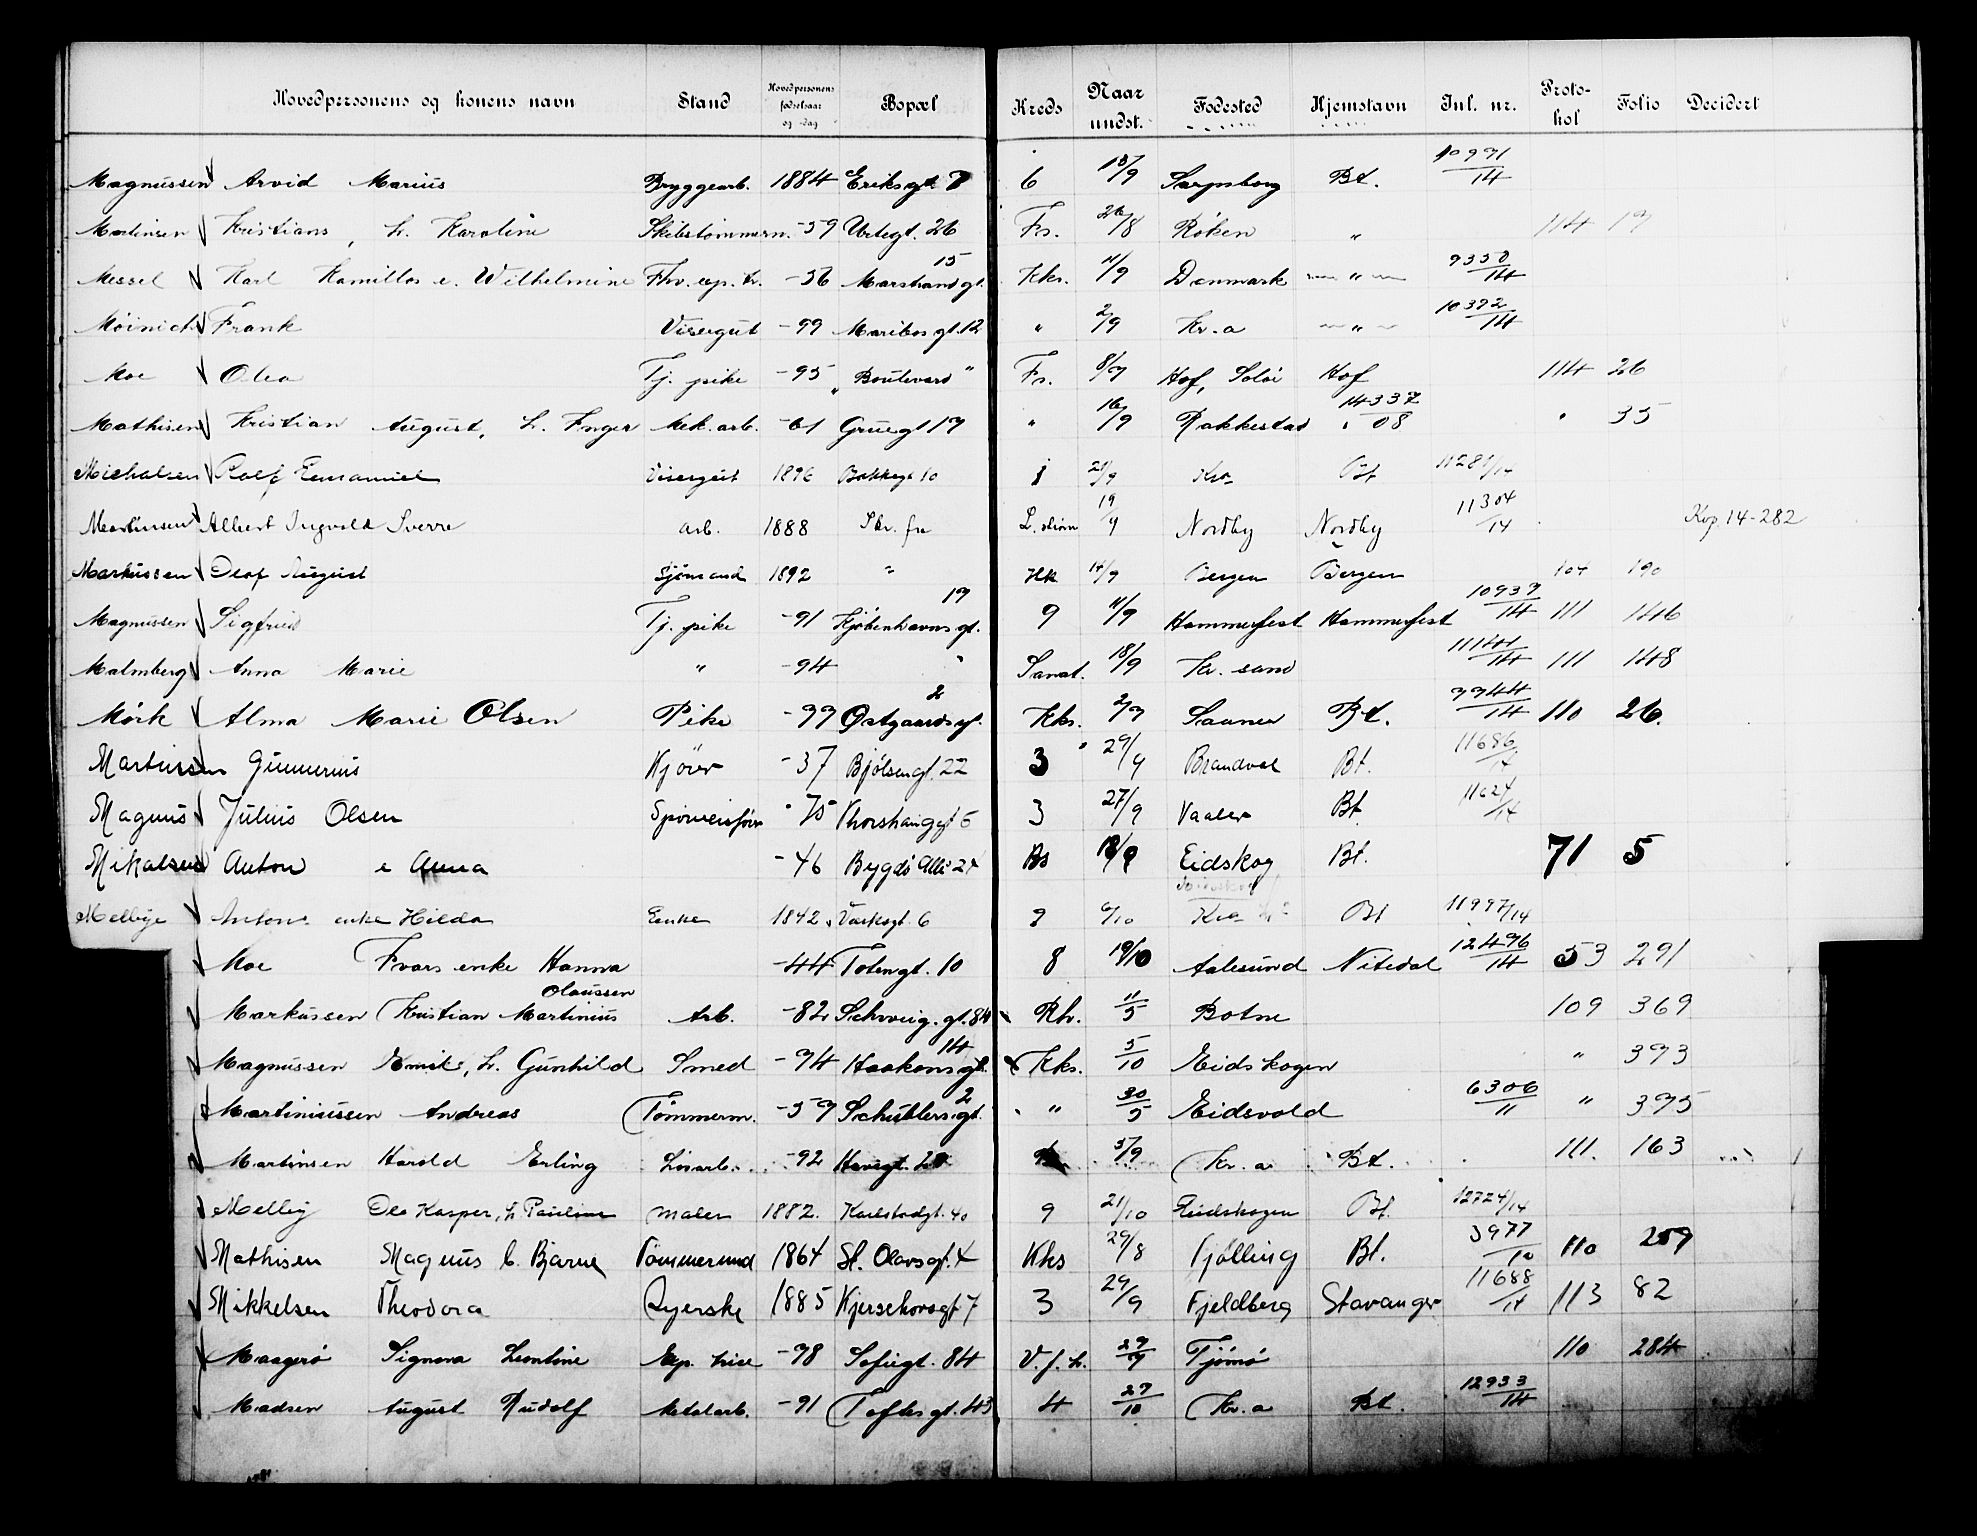 Hovedpersonens og konens navn Stand Hovedpersonens fødselsaar og -dag Bopæl Kreds Naar undst. Fødested Hjemstavn Inl. nr. Protokol Folio Decidert
Magnussen Arvid Marius Bryggearb. 1884 Eriksgt. 7 6 18/9 Sarpsborg Bt. 10991/14
Martinsen Kristians, h. Karoline Skibstømmerm. -59 Urtegt. 26 Fr. 26/8 Røken " 114 19
Messel Karl Kamillas e. Wilhelmine Fhv. exp. tr. -56 Marstrandgt. 15 Kks. 11/9 Danmark " 9350/14
Møinich Frank Visergut -99 Maribosgt. 12 " 2/9 Kr.a " 10372/14
Moe Olea Tj. pike -95 " Boulevard " Fr. 8/9 Hof, Solør Hof 114 26
Mathisen Kristian August, h. Inger Mek. arb. -61 Gruegt 19 " 16/9 Rakkestad " 14337/08 " 35
Michalsen Rolf Emanuel Visergut 1896 Bakkegt 10 1 21/9 Kra Bt 11281/14
Martinsen Albert Ingvald Sverre arb. 1888 19/9 Nordby Nordby 11304/14 Kop. 14-282
Markussen Olaf August Sjømand 1892 " Kk 14/9 Bergen Bergen 104 190
Magnussen Sigfrid Tj. pike -91 Kjøbenhavnsgt. 19 9 11/9 Hammerfest Hammerfest 10939/14 111 146
Malmberg Anna Marie " -94 " Sanat. 18/9 Kr. sand 11141/14 111 148
Mørk Alma Marie Olsen Pike -99 Østgaardsgt. 2 Kks. 2/9 Saaner Bt. 9944/14 110 26.
Martinsen Gunnerius Kjører -37 Bjølsengt. 22 3 29/9 Brandval Bt. 11686/14
Magnus Julius Olsen -75 Thorshauggt 5 3 27/9 Vaaler Bt 11624/14
Mikalsen Anton e Anna -46 Bygdø Allé 24 Bs 18/9 Eidskog Bt. 71 5
Melbye Antons enke Hilda Enke 1842 Varksgt. 6 9 6/10 Kra Bt 11997/14
Moe Ivars enke Hanna -44 Totengt. 10 8 19/10 Aalesund Nitedal 12496/14 53 291
Markussen Kristian Martinius Olaussen Arb. -82 Schweig. gt. 84 Rh. 11/5 Botne 109 369
Magnussen Emil, h. Gunhild Smed -94 Haakonsgt. 14 Kks. 5/10 Eidskogen " 393
Martiniussen Andreas Tømmerm. -59 Schüblersgt. 2 " 30/5 Eidsvold 6306/11 " 395
Martinsen Harald Erling Løsarb. -92 Havegt. 20 5/9 Kr.a Bt. 111. 163
Melby Ole Kasper, h. Pauline Maler 1882. Karlstadgt. 40 9 21/10 Eidskogen Bt. 12724/14
Mathisen Magnus C. Bjarne Tømmermnd 1864 St. Olavsgt. 4 Kks 29/8 Fjølling Bt. 3977/10 110 259
Mikkelsen Theodora Syerske 1885 Kjerschowsgt 7 3 29/9 Fjeldberg Stavanger 11688/14 113 82
Maagerø Signora Leontine Exp. trice -98 Sofiegt. 84 V. f. h. 29/9 Tjømø 110 284
Madsen August Rudolf Metalarb. -91 Toftesgt. 43 4 27/10 Kr.a Bt. 12933/14